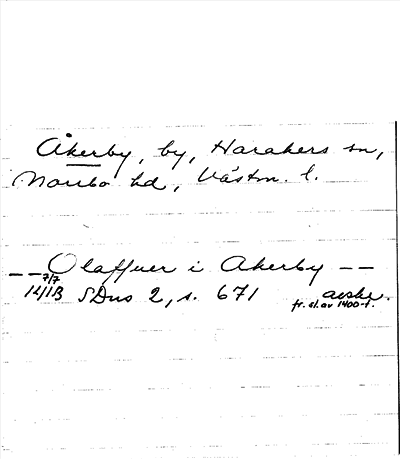 Åkerby, by, Harakers sn,
Norrbo hd, Västm. l.
-- Olaffuer i Akerby --
7/7
1413 SDns 2, s. 671 avskr.
fr. sl. av 1400-t.